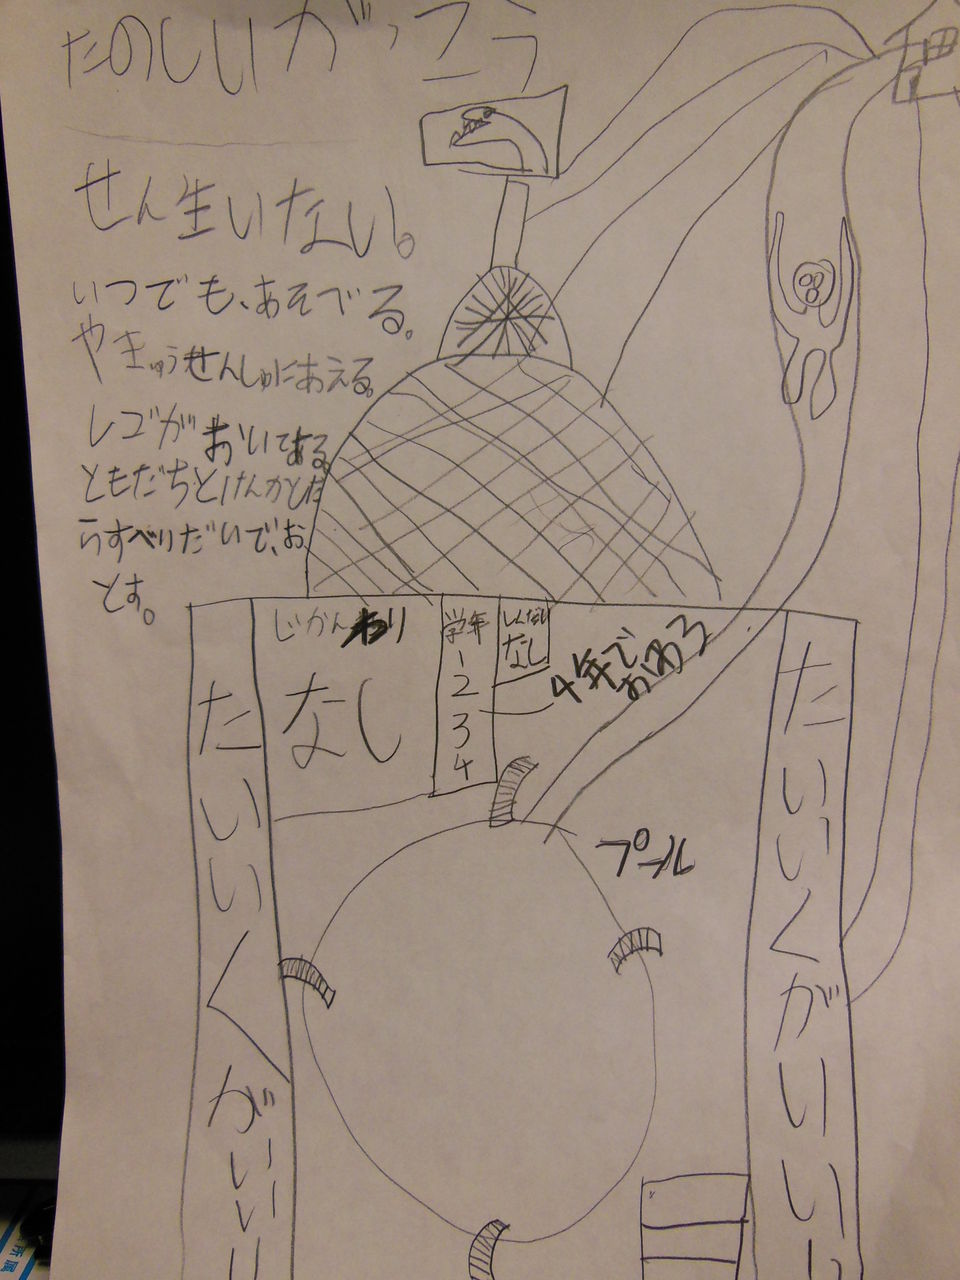 たのしいがっこう
せん生いない。
いつでも、あそべる。
やきゅうせんしゅにあえる。
レゴがおいてある。
ともだちとけんかとした
らすべりだいで、お
とす。
じかんわり
なし
学年
1
2
3
4
しゅくだい
なし
4年で
おわる
プール
たいいくがいい
たいいくがいい